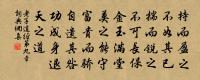 持而盈之
不如其已
揣而銳之
不可長保
金玉滿堂
莫之能守
富貴而驕
自遺其咎
功成身退
天之道
老子道德經第九章